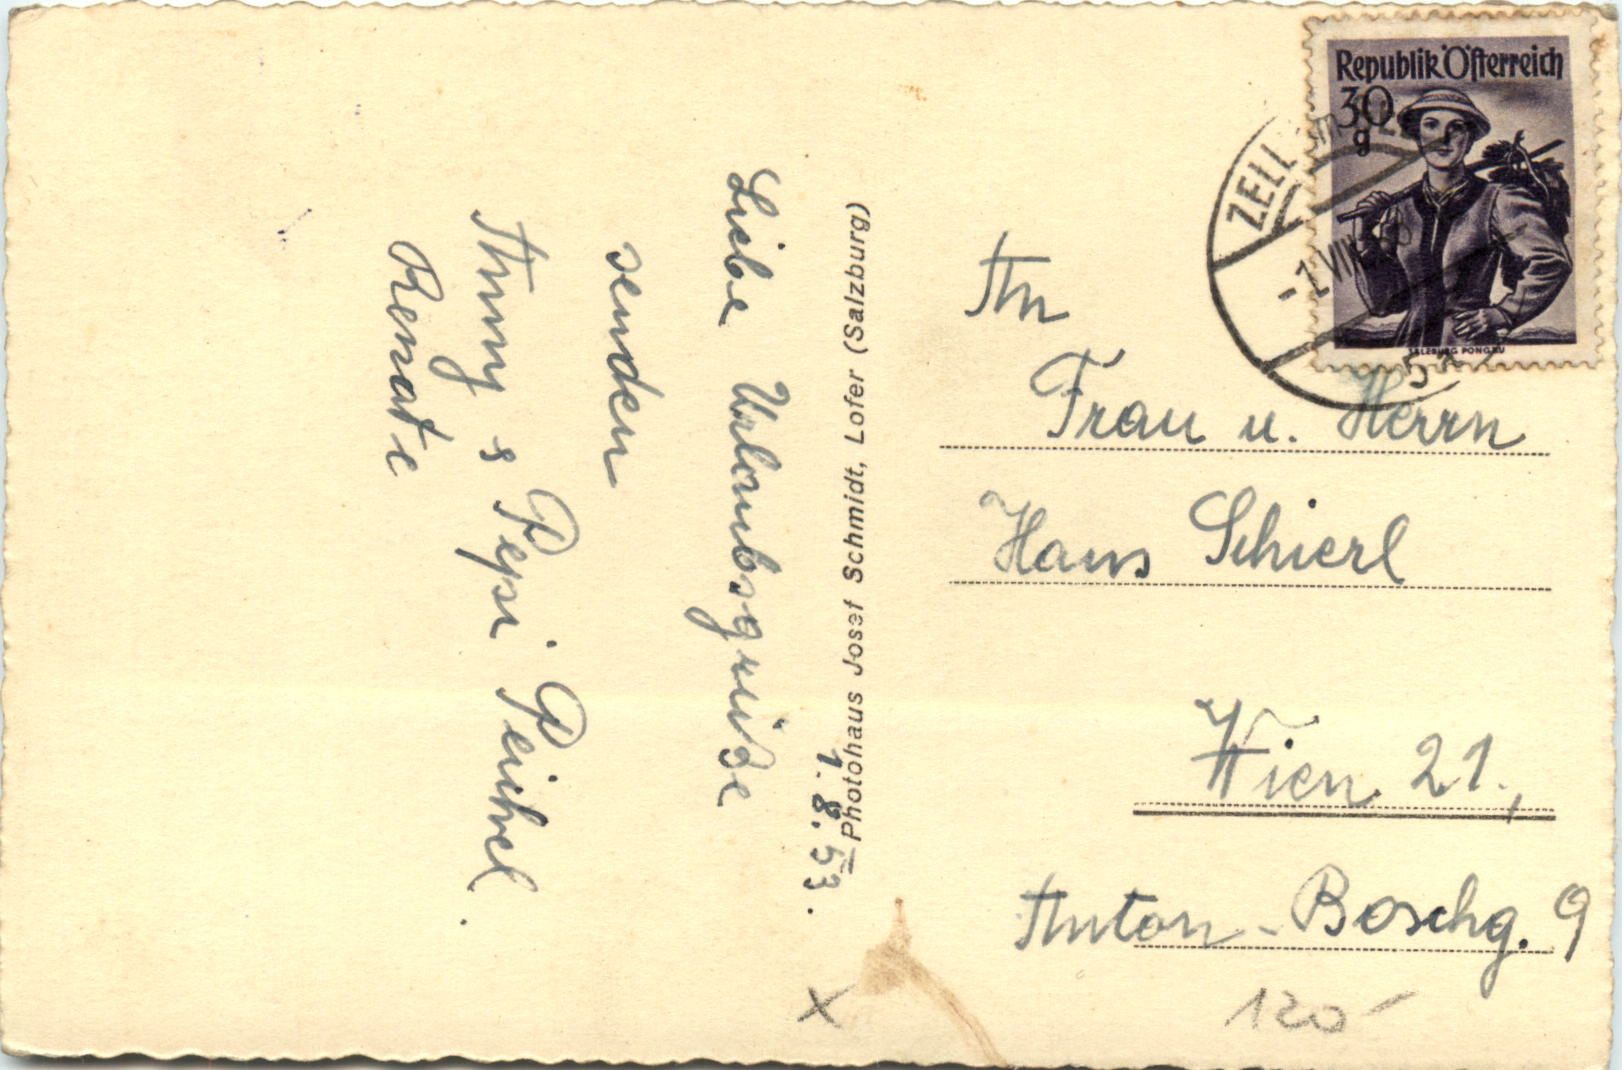 1. 8. 53.
Liebe Urlaubsgrüße
senden
Anny & Pepi Peichel.
Renate
Photohaus Josef Schmidt, Lofer (Salzburg)
Republik Österreich
30
g
SALZBURG PONGAU
ZELL am
-7. VIII
An
Frau u. Herrn
Hans Schierl
Wien 21.,
Anton-Boschg. 9
120-
X